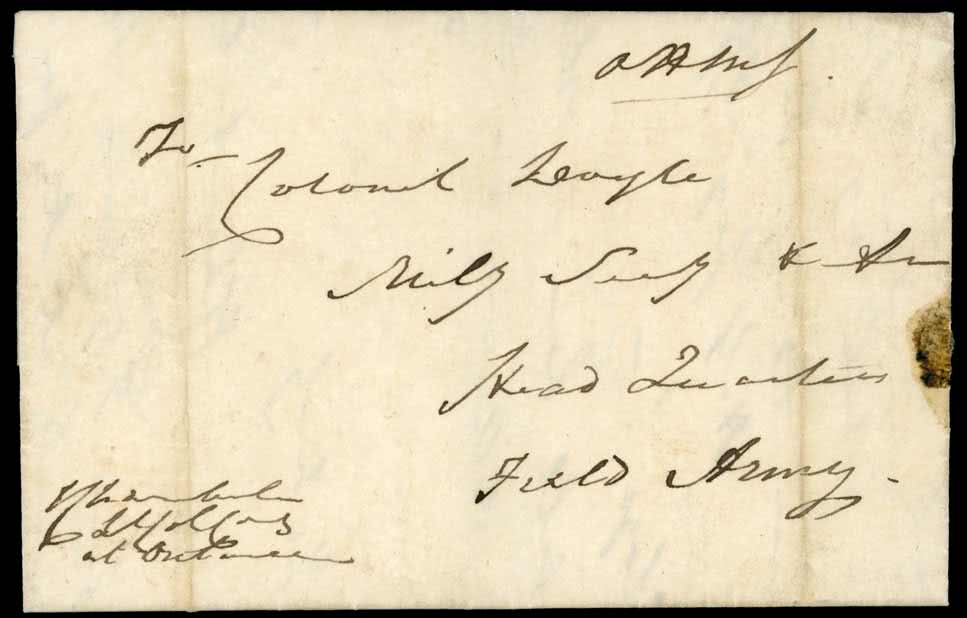 OHMS.
To
Colonel Doyle
Mily Secy &
Head Quarters
Field Army -
at